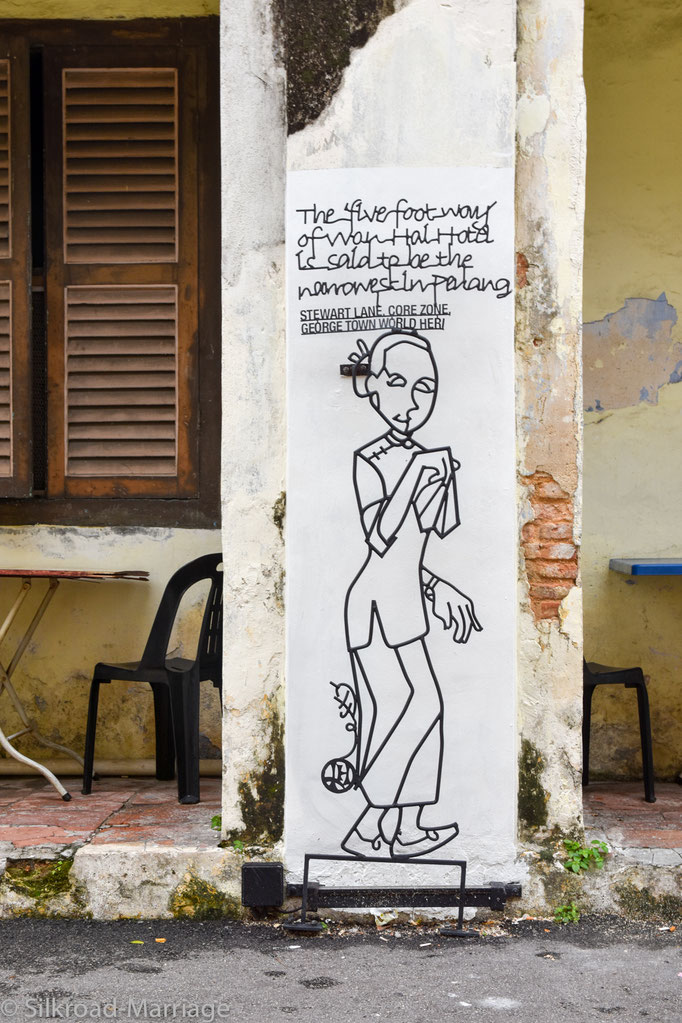 The five foot way
of Wan Hai Hotel
is said to be the
narrowest in Penang
STEWART LANE, CORE ZONE,
GEORGE TOWN WORLD HERI
© Silkroad-Marriage